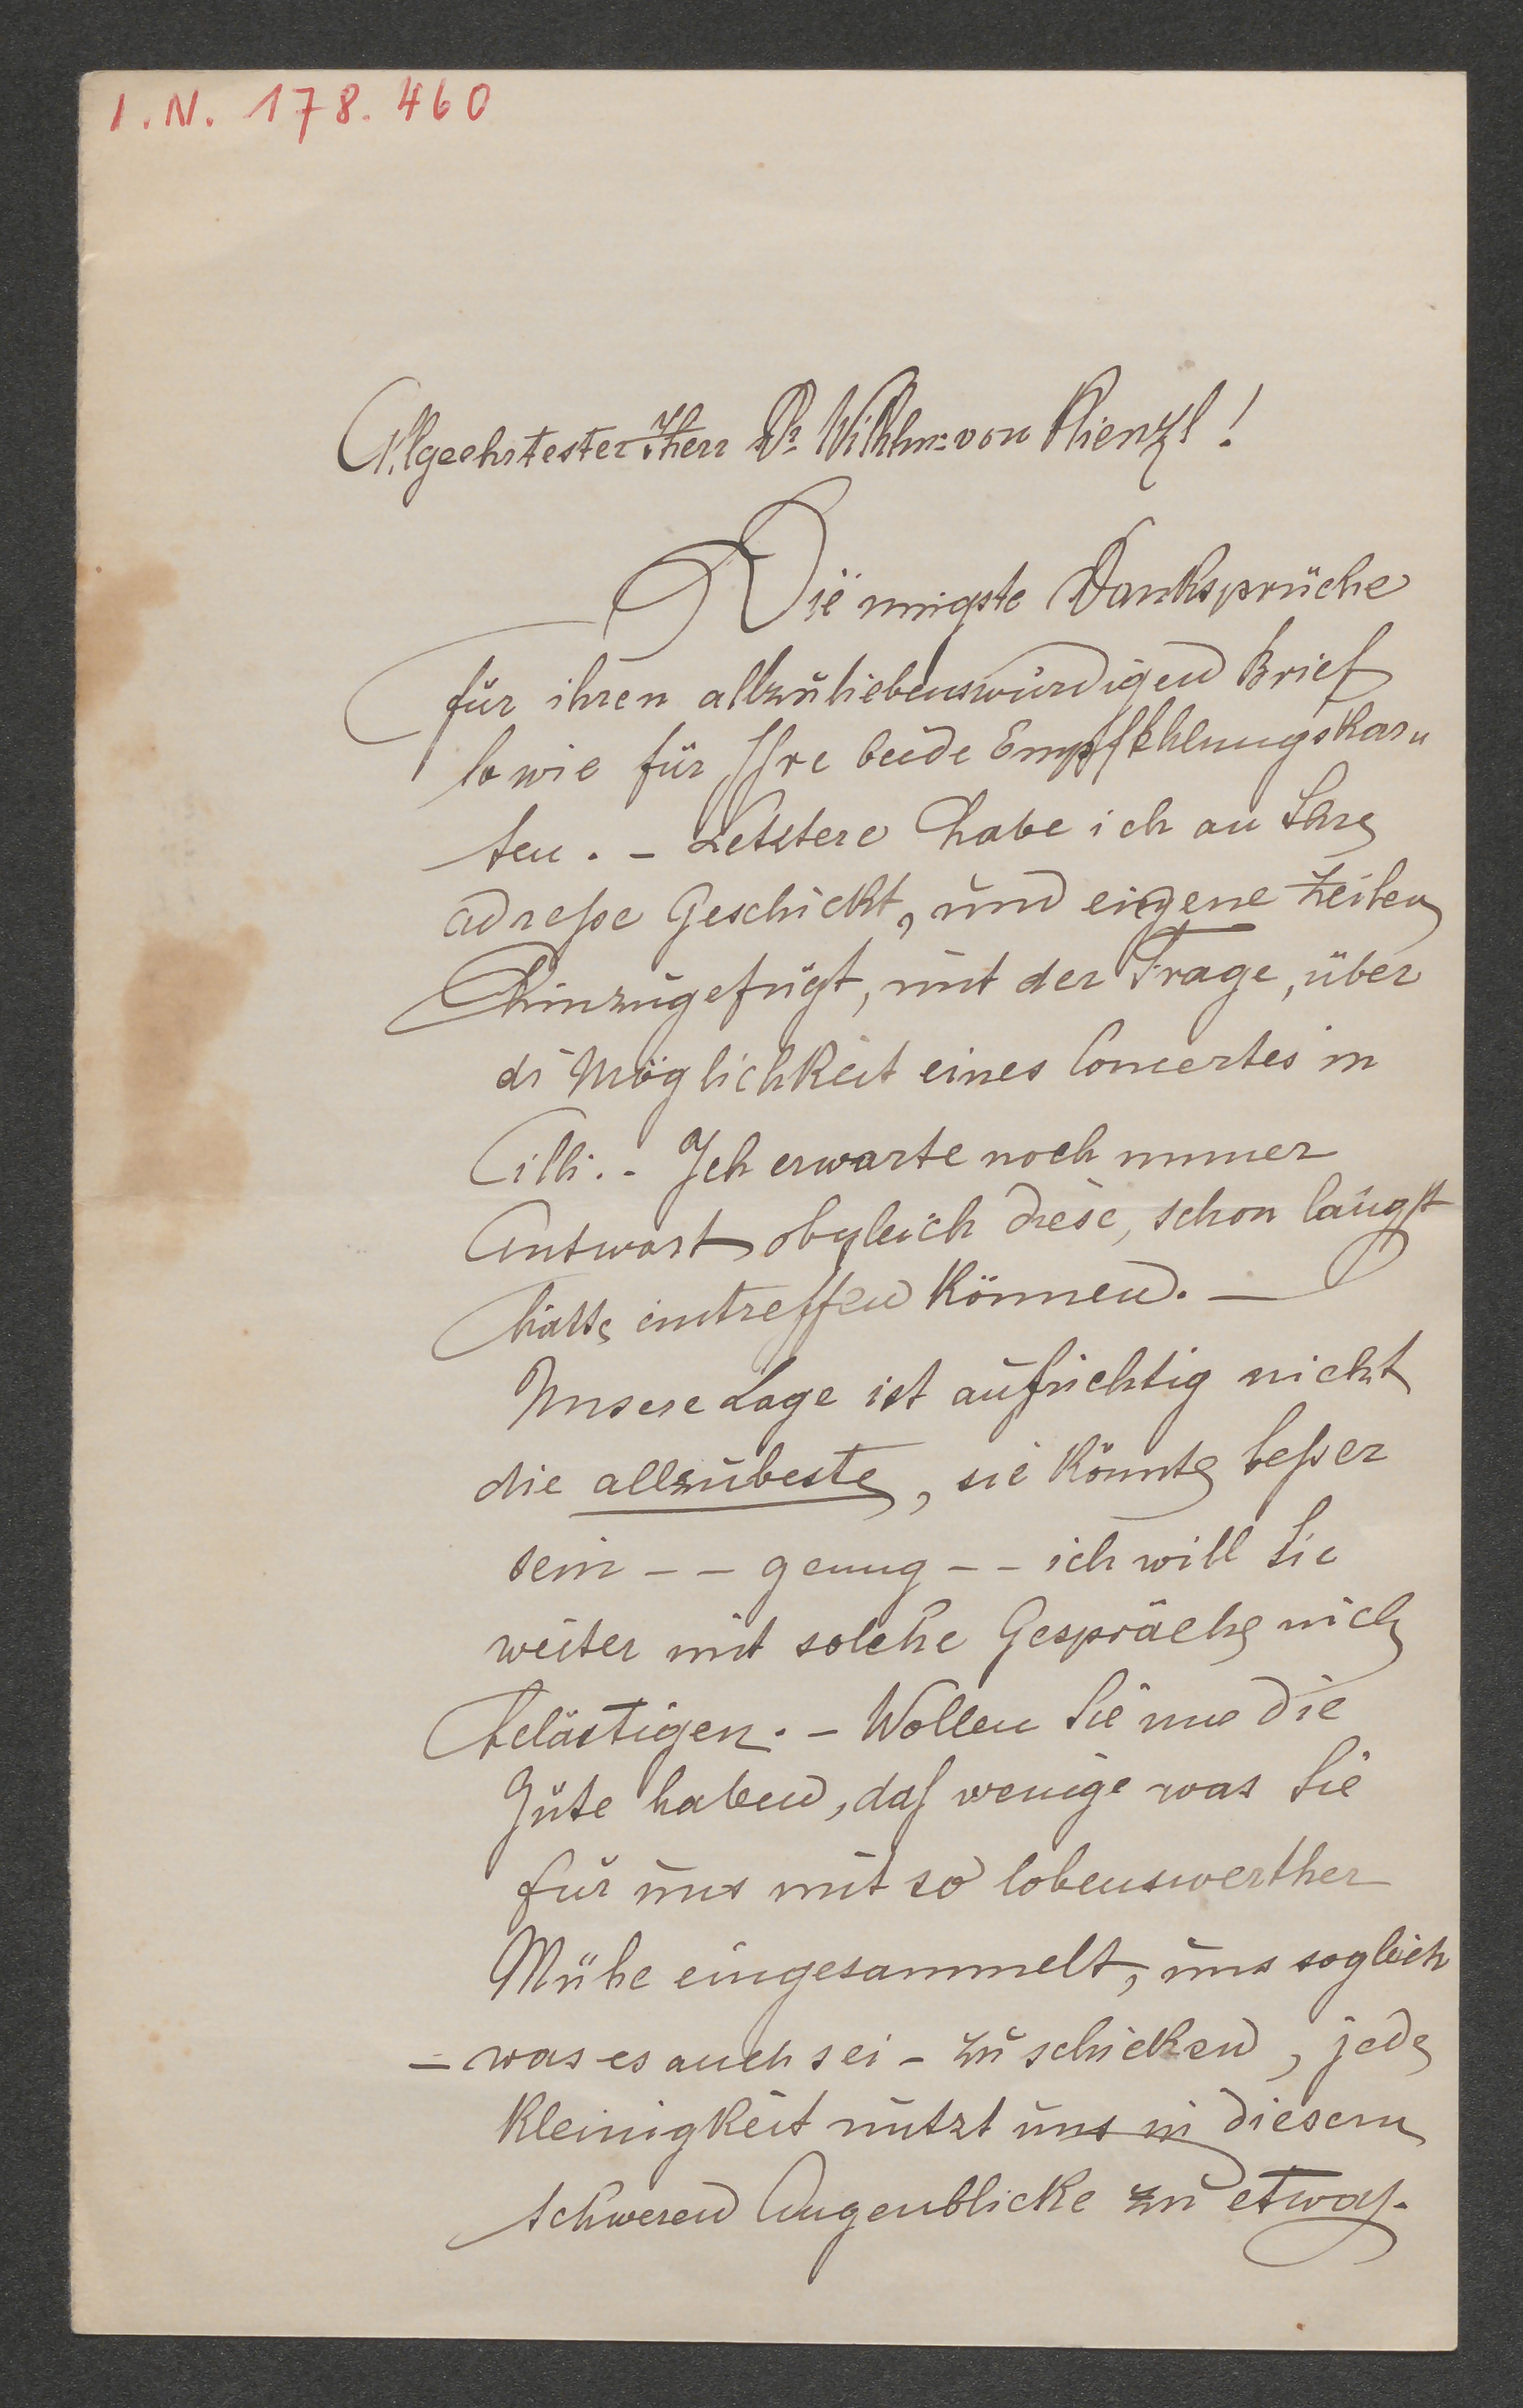 I.N. 178.460
Allgeehrtester Herr Dr Wilhm: von Kienzl!
Die innigste Danksprüche
für ihren allzuliebenswürdigen Brief
so wie für Ihre beide Empfehlungskar„
ten. – Letztere habe ich an Ihre
adreße Geschickt, und eigene Zeilen
hinzugefügt, mit der Frage, über
di Möglichkeit eines Concertes in
Cilli. – Ich erwarte noch immer
Antwort obgleich diese, schon längst
hätte eintreffen können. –
Unsere Lage ist aufrichtig nicht
die allzubeste, sie könnte beßer
sein – – genug – – ich will Sie
weiter mit solche Gespräche nich
belästigen. – Wollen Sie nur die
Güte haben, daß wenige was Sie
für uns mit so lobenswerther
Mühe eingesammelt, uns sogleich
– was es auch sei – zu schicken, jede
Kleinigkeit nützt uns in diesem
schweren Augenblicke zu etwas.